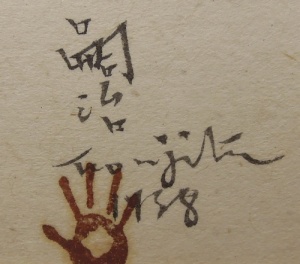 嗣治
Foujita
1938